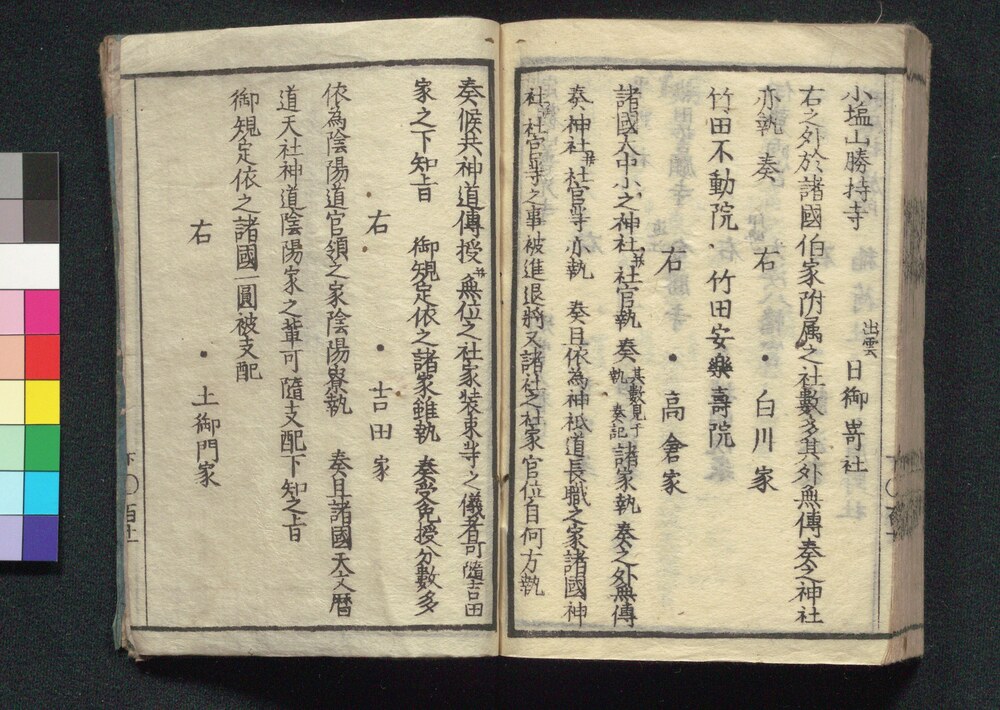 小塩山勝持寺　出雲 日御嵜社
右之外於諸國伯家附属之社數多其外無傳奏之神社
亦執　奏　右　・　白川家
竹田不動院　竹田安樂壽院
右　・　高倉家
諸國大中小之神社并社官執　奏其數見于執　奏記諸家執　奏之外無傳
奏神社并社官等亦執　奏且依為神祇道長職之家諸國神
社社官等之事被進退將又諸社之社家官位自何方執
奏候共神道傳授并無位之社家装束等之儀者可隨吉田
家之下知旨　御規定依之諸家雖執　奏受免授分數多
右　・　吉田家
依為陰陽道官領之家陰陽寮執　奏且諸國天文暦
道天社神道陰陽家之輩可隨支配下知之旨
御規定依之諸國一圓被支配
右　・　土御門家